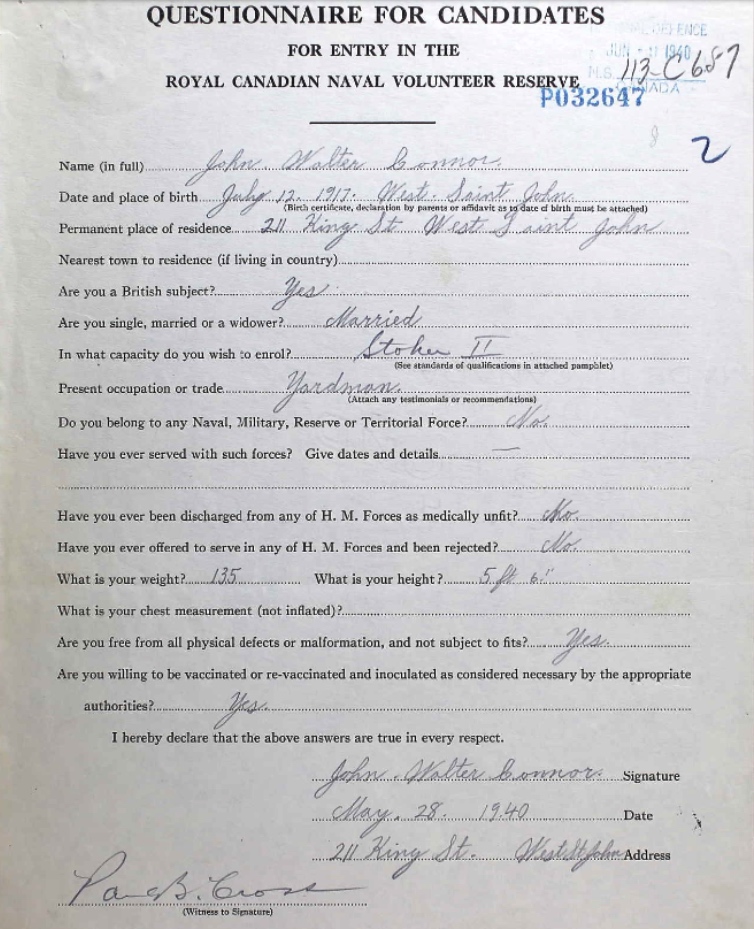 QUESTIONNAIRE FOR CANDIDATES
FOR ENTRY IN THE
ROYAL CANADIAN NAVAL VOLUNTEER RESERVE
DEFENCE
JUN 1940
N.S. 113-C687
CANADA
P032647
2
Name (in full) John Walter Connor.
Date and place of birth July 12. 1917. West. Saint John
(Birth certificate, declaration by parents or affidavit as to date of birth must be attached)
Permanent place of residence 211 King St. West Saint John
Nearest town to residence (if living in country)
Are you a British subject? Yes
Are you single, married or a widower? Married
In what capacity do you wish to enrol? Stoker II
(See standards of qualifications in attached pamphlet)
Present occupation or trade Yardman.
(Attach any testimonials or recommendations)
Do you belong to any Naval, Military, Reserve or Territorial Force? No.
Have you ever served with such forces? Give dates and details —
Have you ever been discharged from any of H. M. Forces as medically unfit? No.
Have you ever offered to serve in any of H. M. Forces and been rejected? No.
What is your weight? 135 What is your height? 5 ft 6"
What is your chest measurement (not inflated)?
Are you free from all physical defects or malformation, and not subject to fits? Yes.
Are you willing to be vaccinated or re-vaccinated and inoculated as considered necessary by the appropriate
authorities? Yes.
I hereby declare that the above answers are true in every respect.
John. Walter Connor. Signature
May. 28. 1940 Date
211 King St. West St John Address
B. Cross
(Witness to Signature)